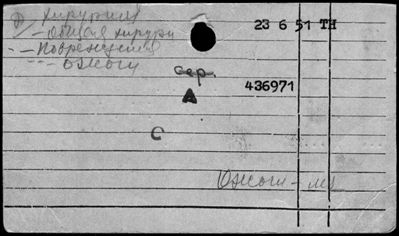 Хирургия
- Общая хирург
23 6 51 TH
-- Повреждения
--- Ожоги
сер.
436971
А
С
Ожоги -